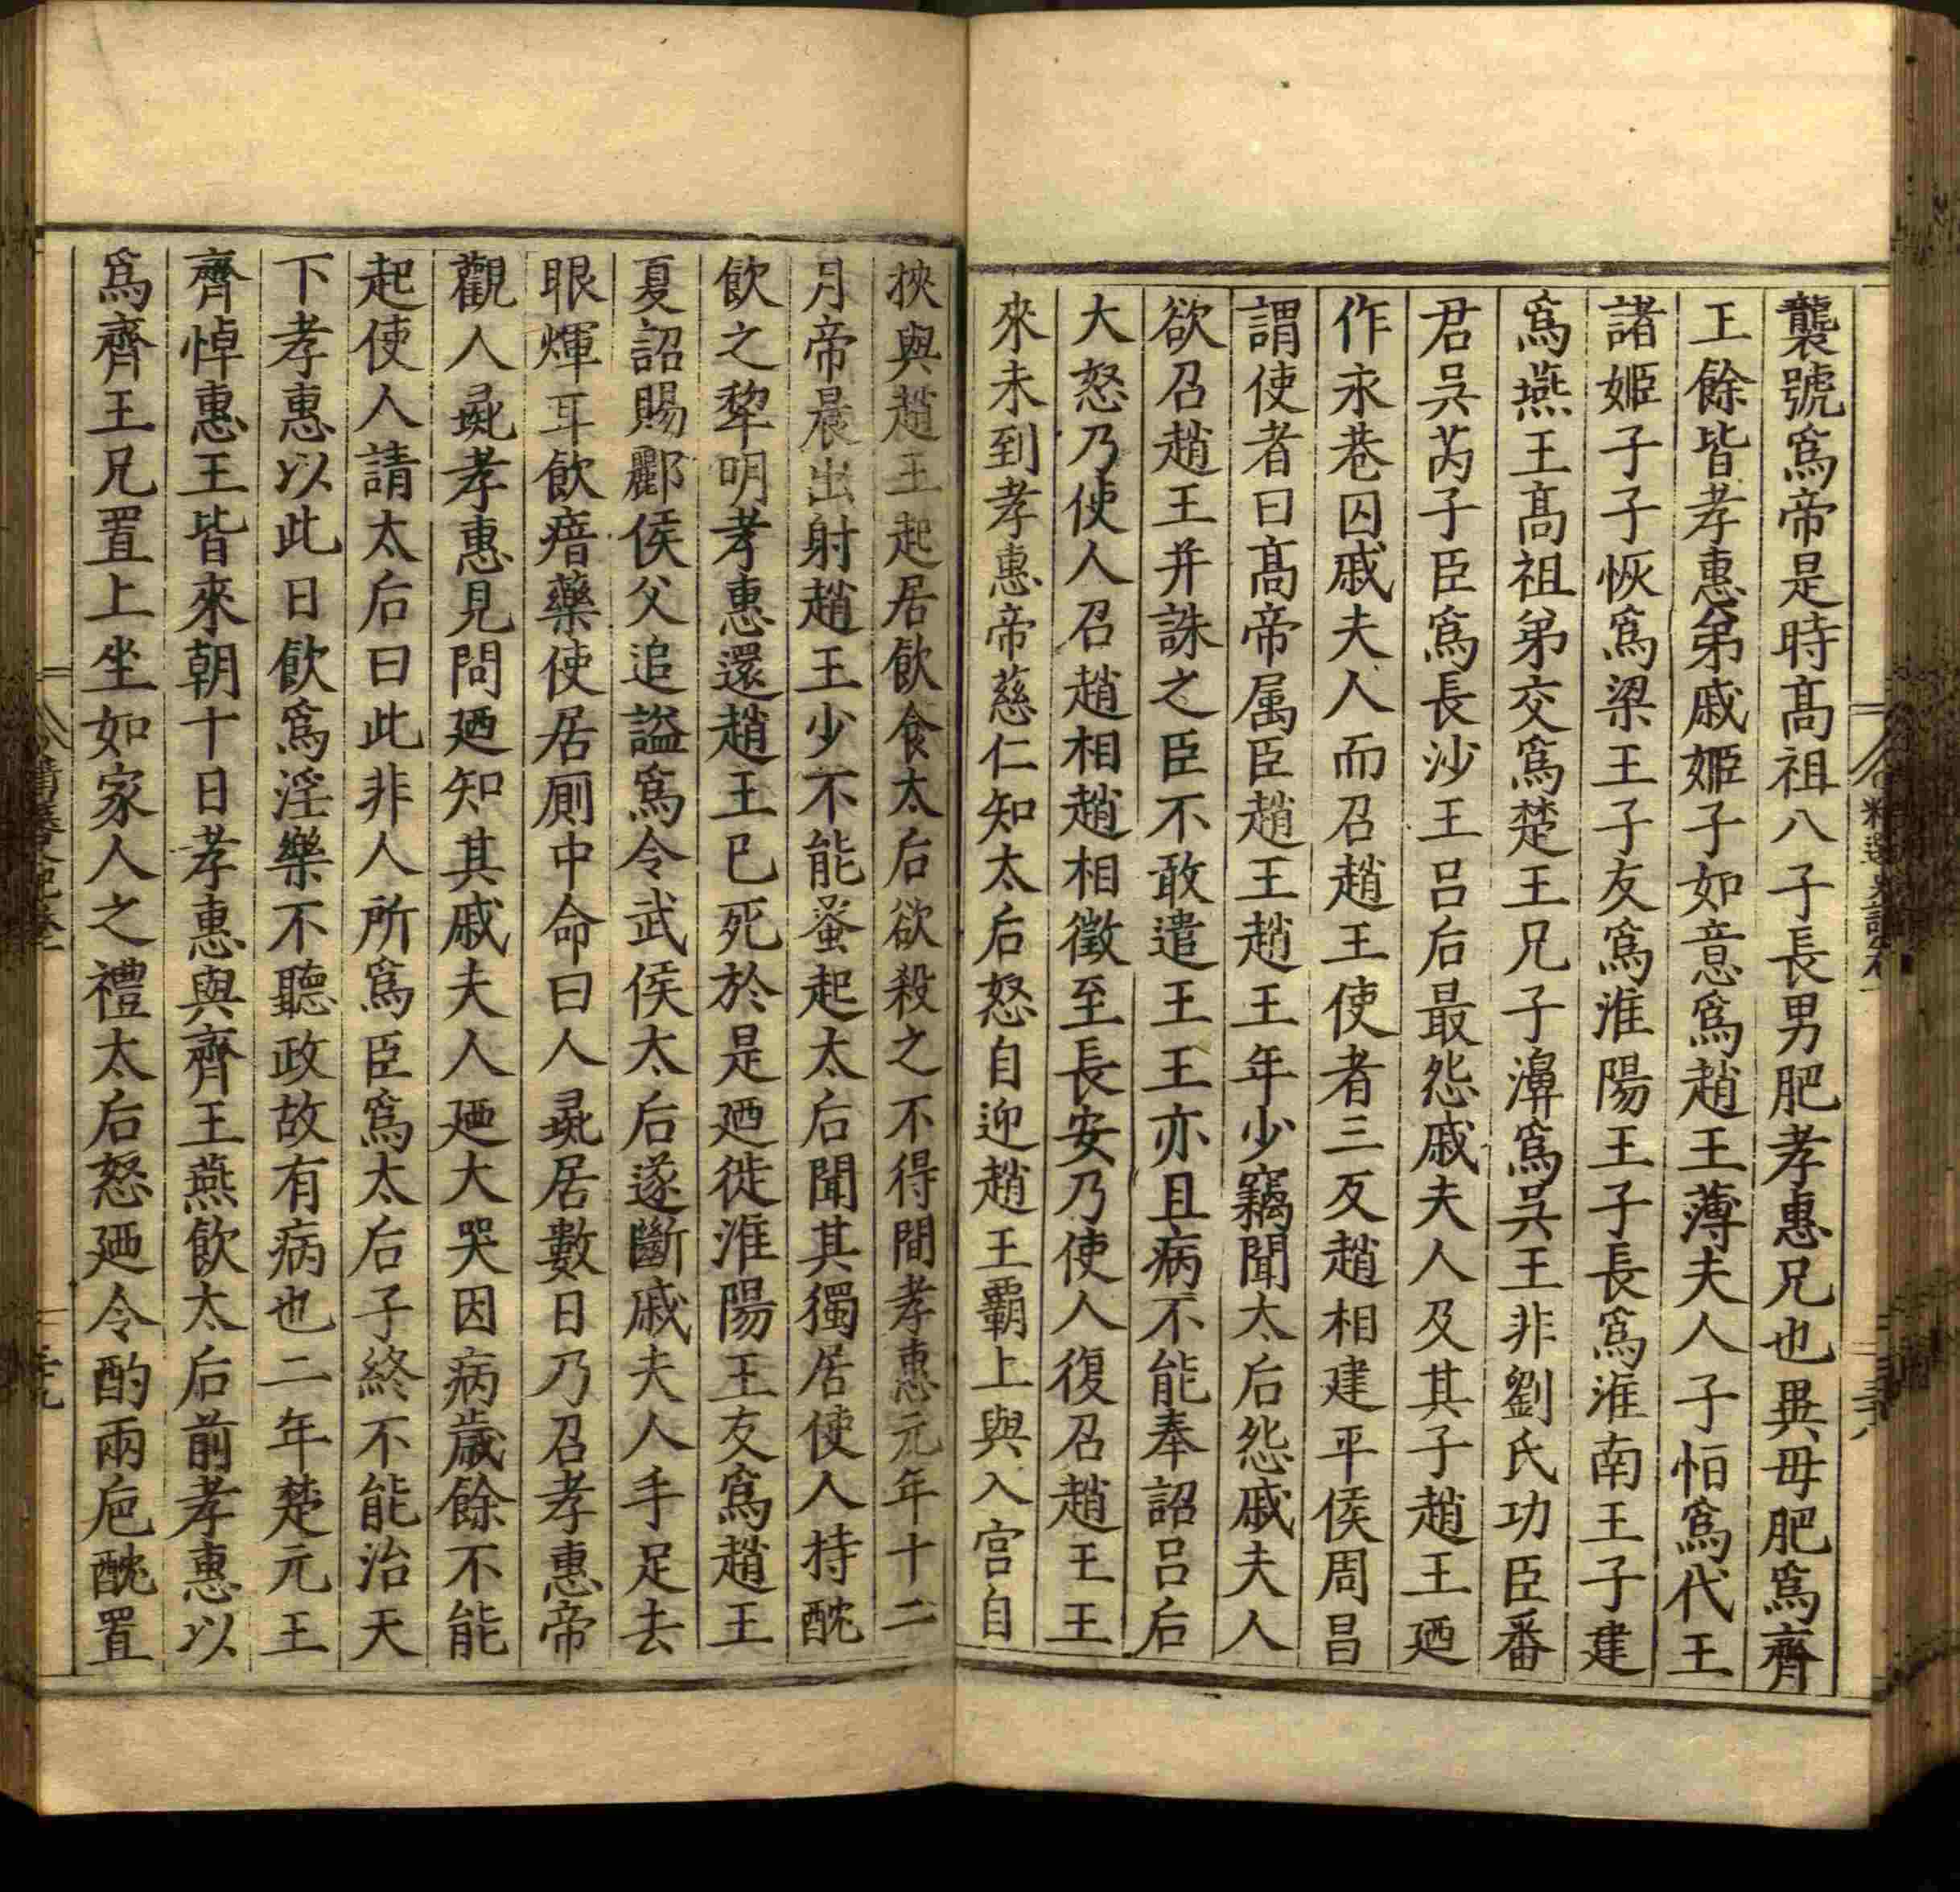 襲號爲帝是時髙祖八子長男肥孝惠兄也異母肥爲齊
王餘皆孝惠弟戚姬子如意爲趙王薄夫人子恒爲代王
諸姬子子恢爲梁王子友爲淮陽王子長爲淮南王子建
爲燕王髙祖弟交爲楚王兄子濞爲吳王非劉氏功臣番
君吳芮子臣爲長沙王吕后最怨戚夫人及其子趙王廼
作永巷囚戚夫人而召趙王使者三反趙相建平侯周昌
謂使者曰髙帝属臣趙王趙王年少竊聞太后怨戚夫人
欲召趙王并誅之臣不敢遣王王亦且病不能奉詔吕后
大怒乃使人召趙相趙相徵至長安乃使人復召趙王王
來未到孝惠帝慈仁知太后怒自迎趙王覇上與入宮自
挾與趙王起居飲食太后欲殺之不得間孝惠元年十二
月帝晨出射趙王少不能蚤起太后聞其獨居使人持酖
飲之犂明孝惠還趙王已死於是廼徙淮陽王友爲趙王
夏詔賜酈侯父追謚爲令武侯太后遂斷戚夫人手足去
眼煇耳飲瘖藥使居厠中命曰人彘居數日乃召孝惠帝
觀人彘孝惠見問廼知其戚夫人廼大哭因病歲餘不能
起使人請太后曰此非人所爲臣爲太后子終不能治天
下孝惠以此日飲爲淫樂不聽政故有病也二年楚元王
齊悼惠王皆來朝十日孝惠與齊王燕飲太后前孝惠以
爲齊王兄置上坐如家人之禮太后怒廼令酌兩巵酖置